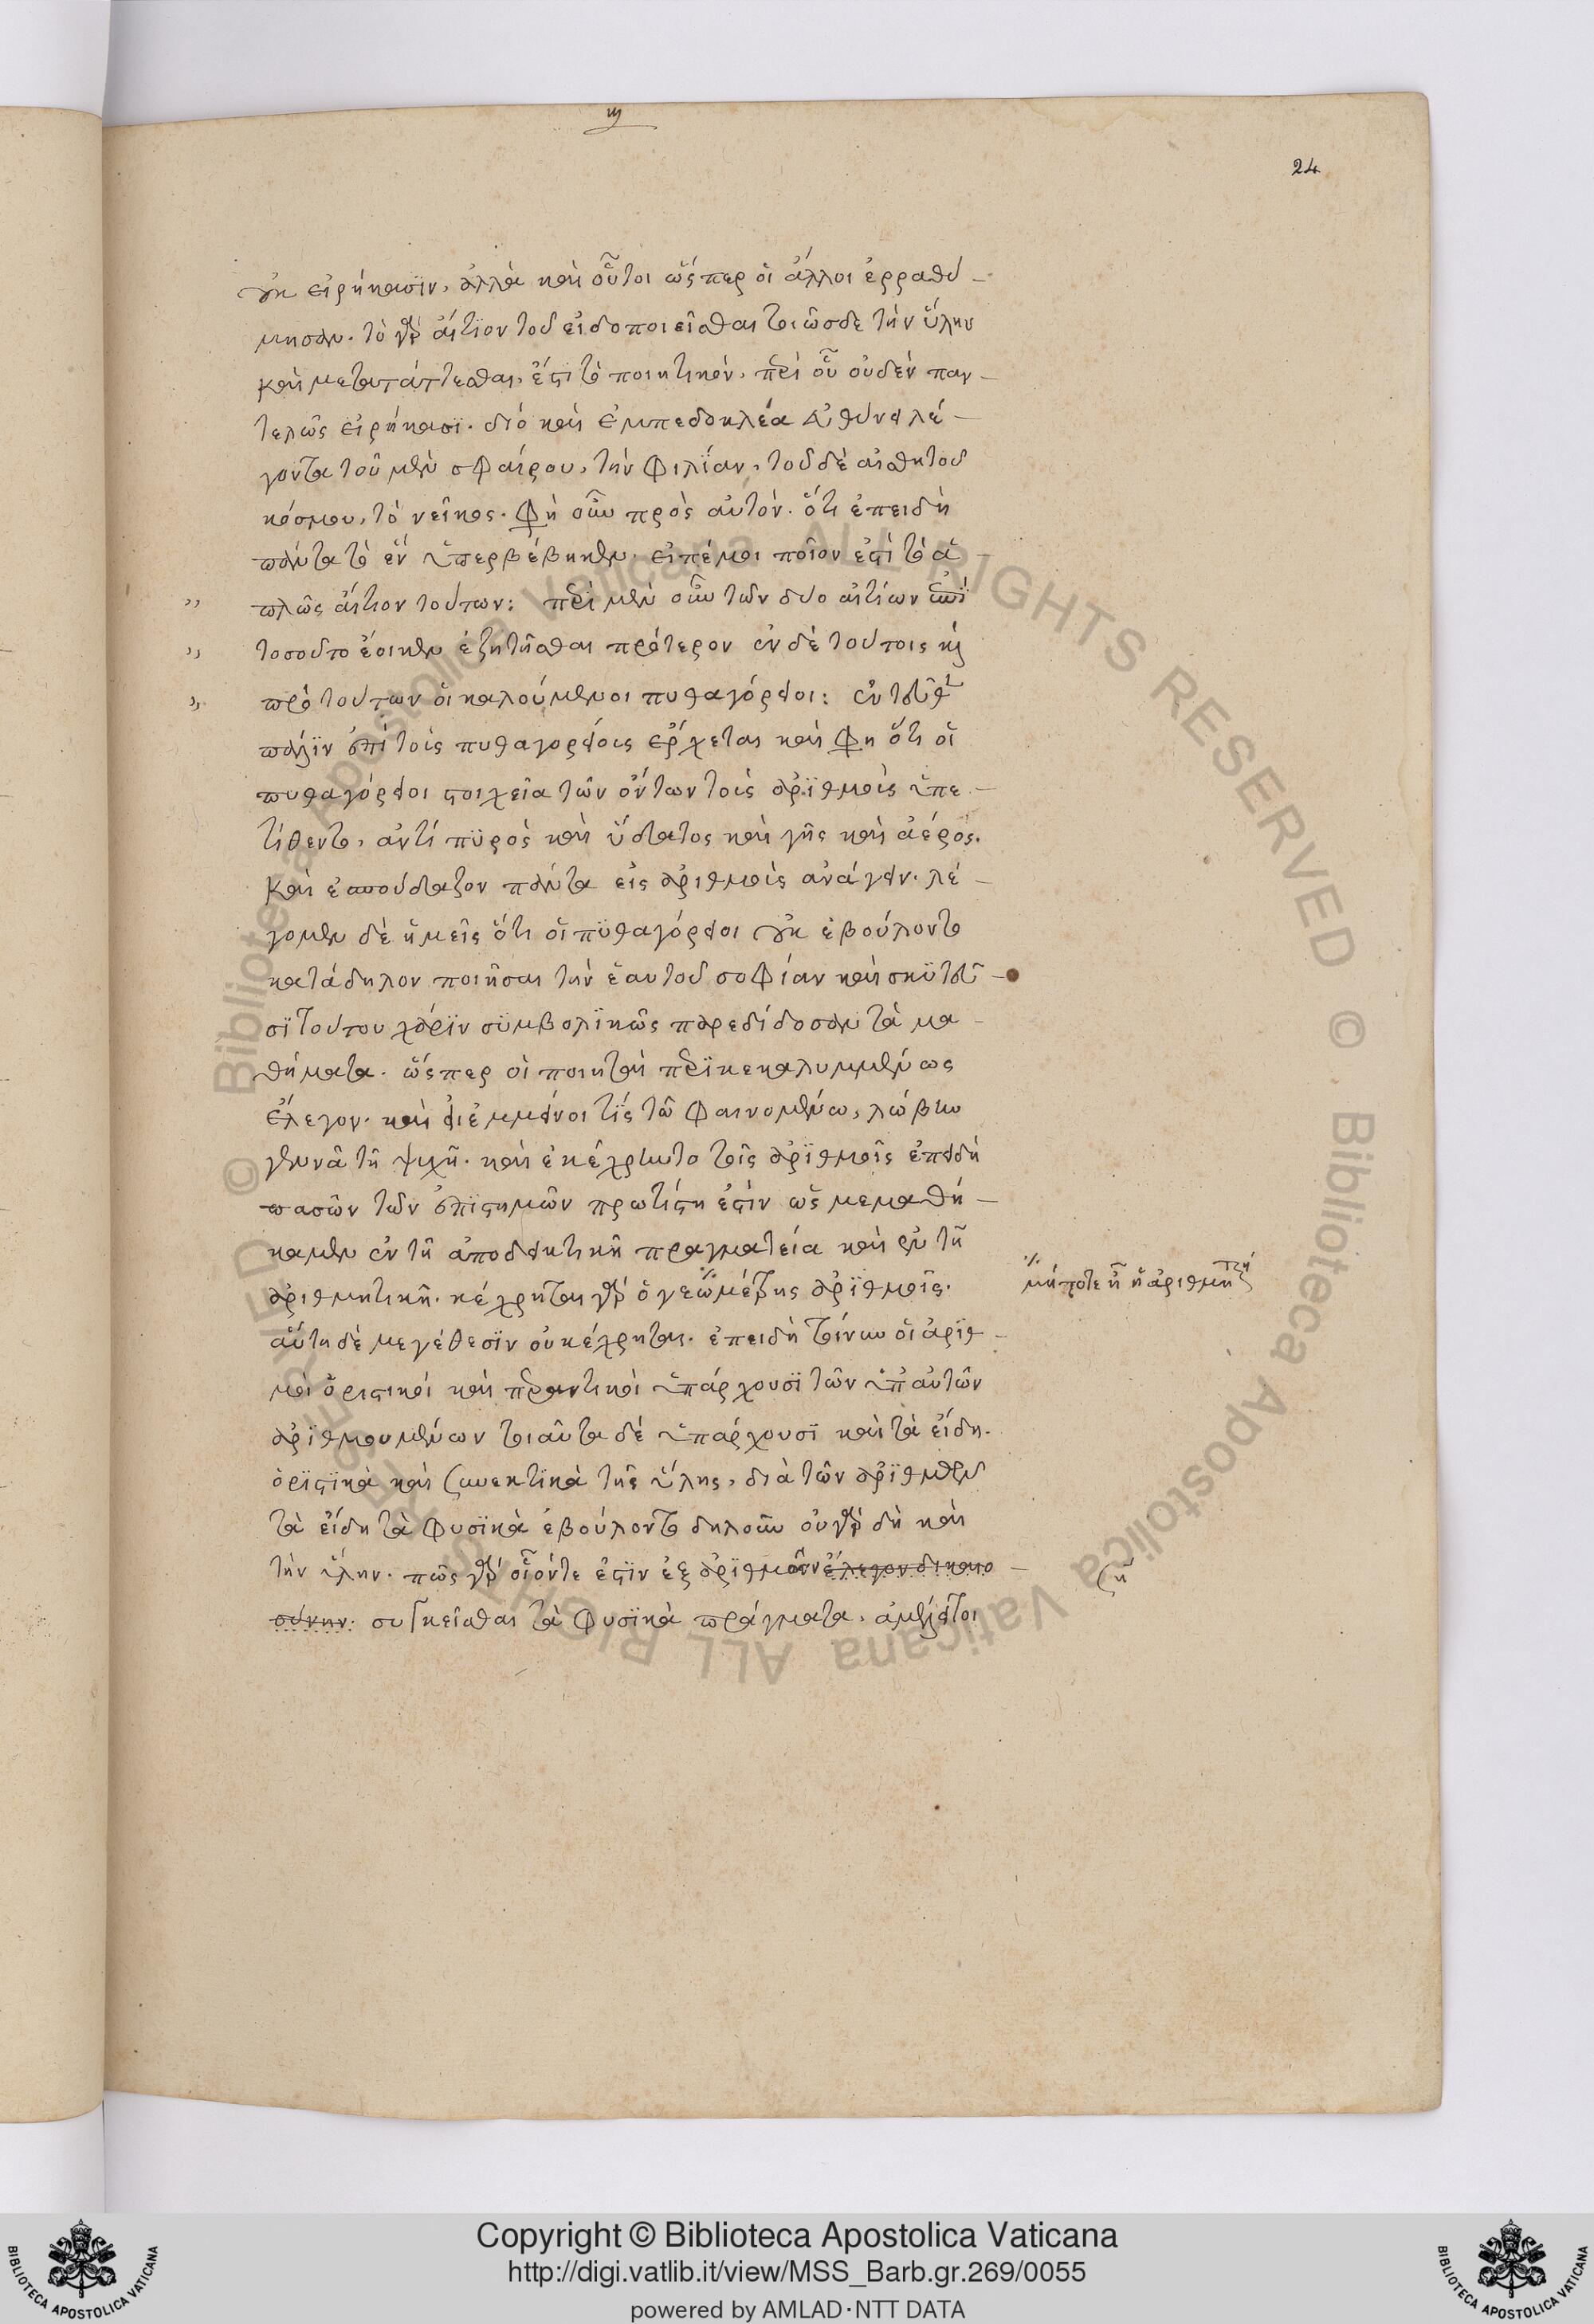 24
οὐκ εἰρήκασϊν, ἀλλὰ καὶ οὗτοι ὥσπερ οἱ ἄλλοι ἐρραθύ-
μησαν. τὸ γὰρ αἴτϊον τοῦ εἰδοποιεῖσθαι τοιῶσδε τὴν ὕλην
καὶ μετατάττεσθαι, ἐστὶ τὸ ποιητικόν, περὶ οὗ οὐδὲν παν-
τελῶς εἰρήκασϊ. διὸ καὶ ἐμπεδοκλέα εὐθύνει λέ-
γοντα τοῦ μὲν σφαίρου, τὴν φιλΐαν, τοῦ δὲ αἰσθητοῦ
κόσμου, τὸ νεῖκος. φησὶ οὖν πρὸς αὐτόν. ὅτι ἐπειδὴ
πάντα τὸ ἓν ὑπερβέβηκεν. εἰπέ μοι ποῖον ἐστὶ τὸ ἁ-
,, πλῶς αἴτιον τούτων: περὶ μὲν οὖν τῶν δύο αἰτίων ἐπὶ
,, τοσοῦτο ἔοικεν ἐζητῆσθαι πρότερον ἐν δὲ τούτοις καὶ
,, πρὸ τούτων οἱ καλούμενοι πυθαγόρειοι: ἐνταῦθα
πάλϊν ἐπὶ τοὺς πυθαγορείους ἔρχεται καὶ φησὶ ὅτι οἱ
πυθαγόρειοι στοιχεῖα τῶν ὄντων τοὺς ἀρϊθμοὺς ὑπε-
τίθεντο, ἀντὶ πϋρὸς καὶ ὕδατος καὶ γῆς καὶ ἀέρος.
καὶ ἐσπούδαζον πάντα εἰς ἀριθμοὺς ἀνάγειν. λέ-
γομεν δὲ ἡμεῖς ὅτι οἱ πϋθαγόρειοι οὐκ ἐβούλοντο
κατάδηλον ποιῆσαι τὴν ἑαυτοῦ σοφίαν καὶ σκϋταῦ-
σϊ τούτου χάρϊν συμβολϊκῶς παρεδίδοσαν τὰ μα-
θήματα. ὥσπερ οἱ ποιηταὶ περϊκεκαλυμμένως
ἔλεγον. καὶ
γεννᾶ τῆ ψυχῆ. καὶ ἐκέχρηντο τοῖς ἀρϊθμοῖς ἐπειδὴ
πασῶν τῶν ἐπϊστημῶν πρωτίστη ἐστὶν ὡς μεμαθή-
καμεν ἐν τῆ ἀποδεικτικῆ πραγματεία καὶ ἐν τῆ
ἀριθμητικῆ. κέχρηται γὰρ ὁ γεωμέτρης ἀρϊθμοῖς.
αὕτη δὲ μεγέθεσϊν οὐ κέχρηται. ἐπειδὴ τοίνυν οἱ ἀρϊθ-
μοὶ ὁριστικοὶ καὶ περαντικοὶ ὑπάρχουσϊ τῶν ὑπ' αὐτῶν
ἀρϊθμουμένων τοιαῦτα δὲ ὑπάρχουσϊ καὶ τὰ εἴδη.
ὁρϊστϊκὰ καὶ συνεκτϊκὰ τῆς ὕλης, διὰ τῶν ἀρϊθμῶν
τὰ εἴδη τὰ φυσϊκὰ ἐβούλοντο δηλοῦν οὐ γὰρ δὴ καὶ
τὴν ὕλην. πῶς γὰρ οἷόν τε ἐστϊν ἐξ ἀρϊθμῶν ἔλεγον δικαιο-
σύνην. συγκεῖσθαι τὰ φυσϊκὰ πράγματα,
μήποτε ἦν ἡ ἀριθμητική
Copyright © Biblioteca Apostolica Vaticana
http://digi.vatlib.it/view/MSS_Barb.gr.269/0055
powered by AMLAD·NTT DATA